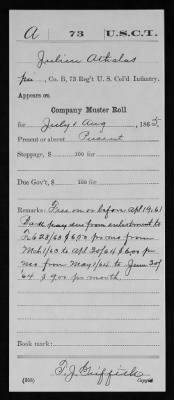 A 73 U.S.C.T.
Julien Athalas
Co. B, 73 Reg't U. S. Col'd Infantry.
Appears on
Company Muster Roll
for July & Aug, 1865
Present or absent Present
Stoppage, $ 100 for
Due Gov't, $ 100 for
Remarks: Free on or before Apl 19.61
Back pay due from enlistment to
Feb 28/63 $ per mo from
Mch 1/63 to Apl 30/64 $6.00 per
mo from May 1/64 to June 30/
64 $ 9.00 per month.
Book mark:
T. J. Griffith
(355) Copyist.